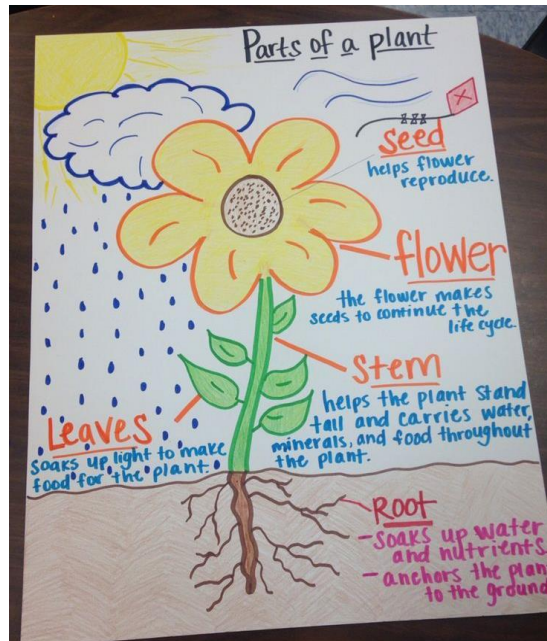 Parts of a plant
Seed
helps flower
reproduce.
flower
the flower makes
seeds to continue the
life cycle.
Stem
helps the plant stand
tall and carries water,
minerals, and food throughout
the plant.
Leaves
soaks up light to make
food for the plant.
Root
- soaks up water
and nutrients
- anchors the plan
to the ground